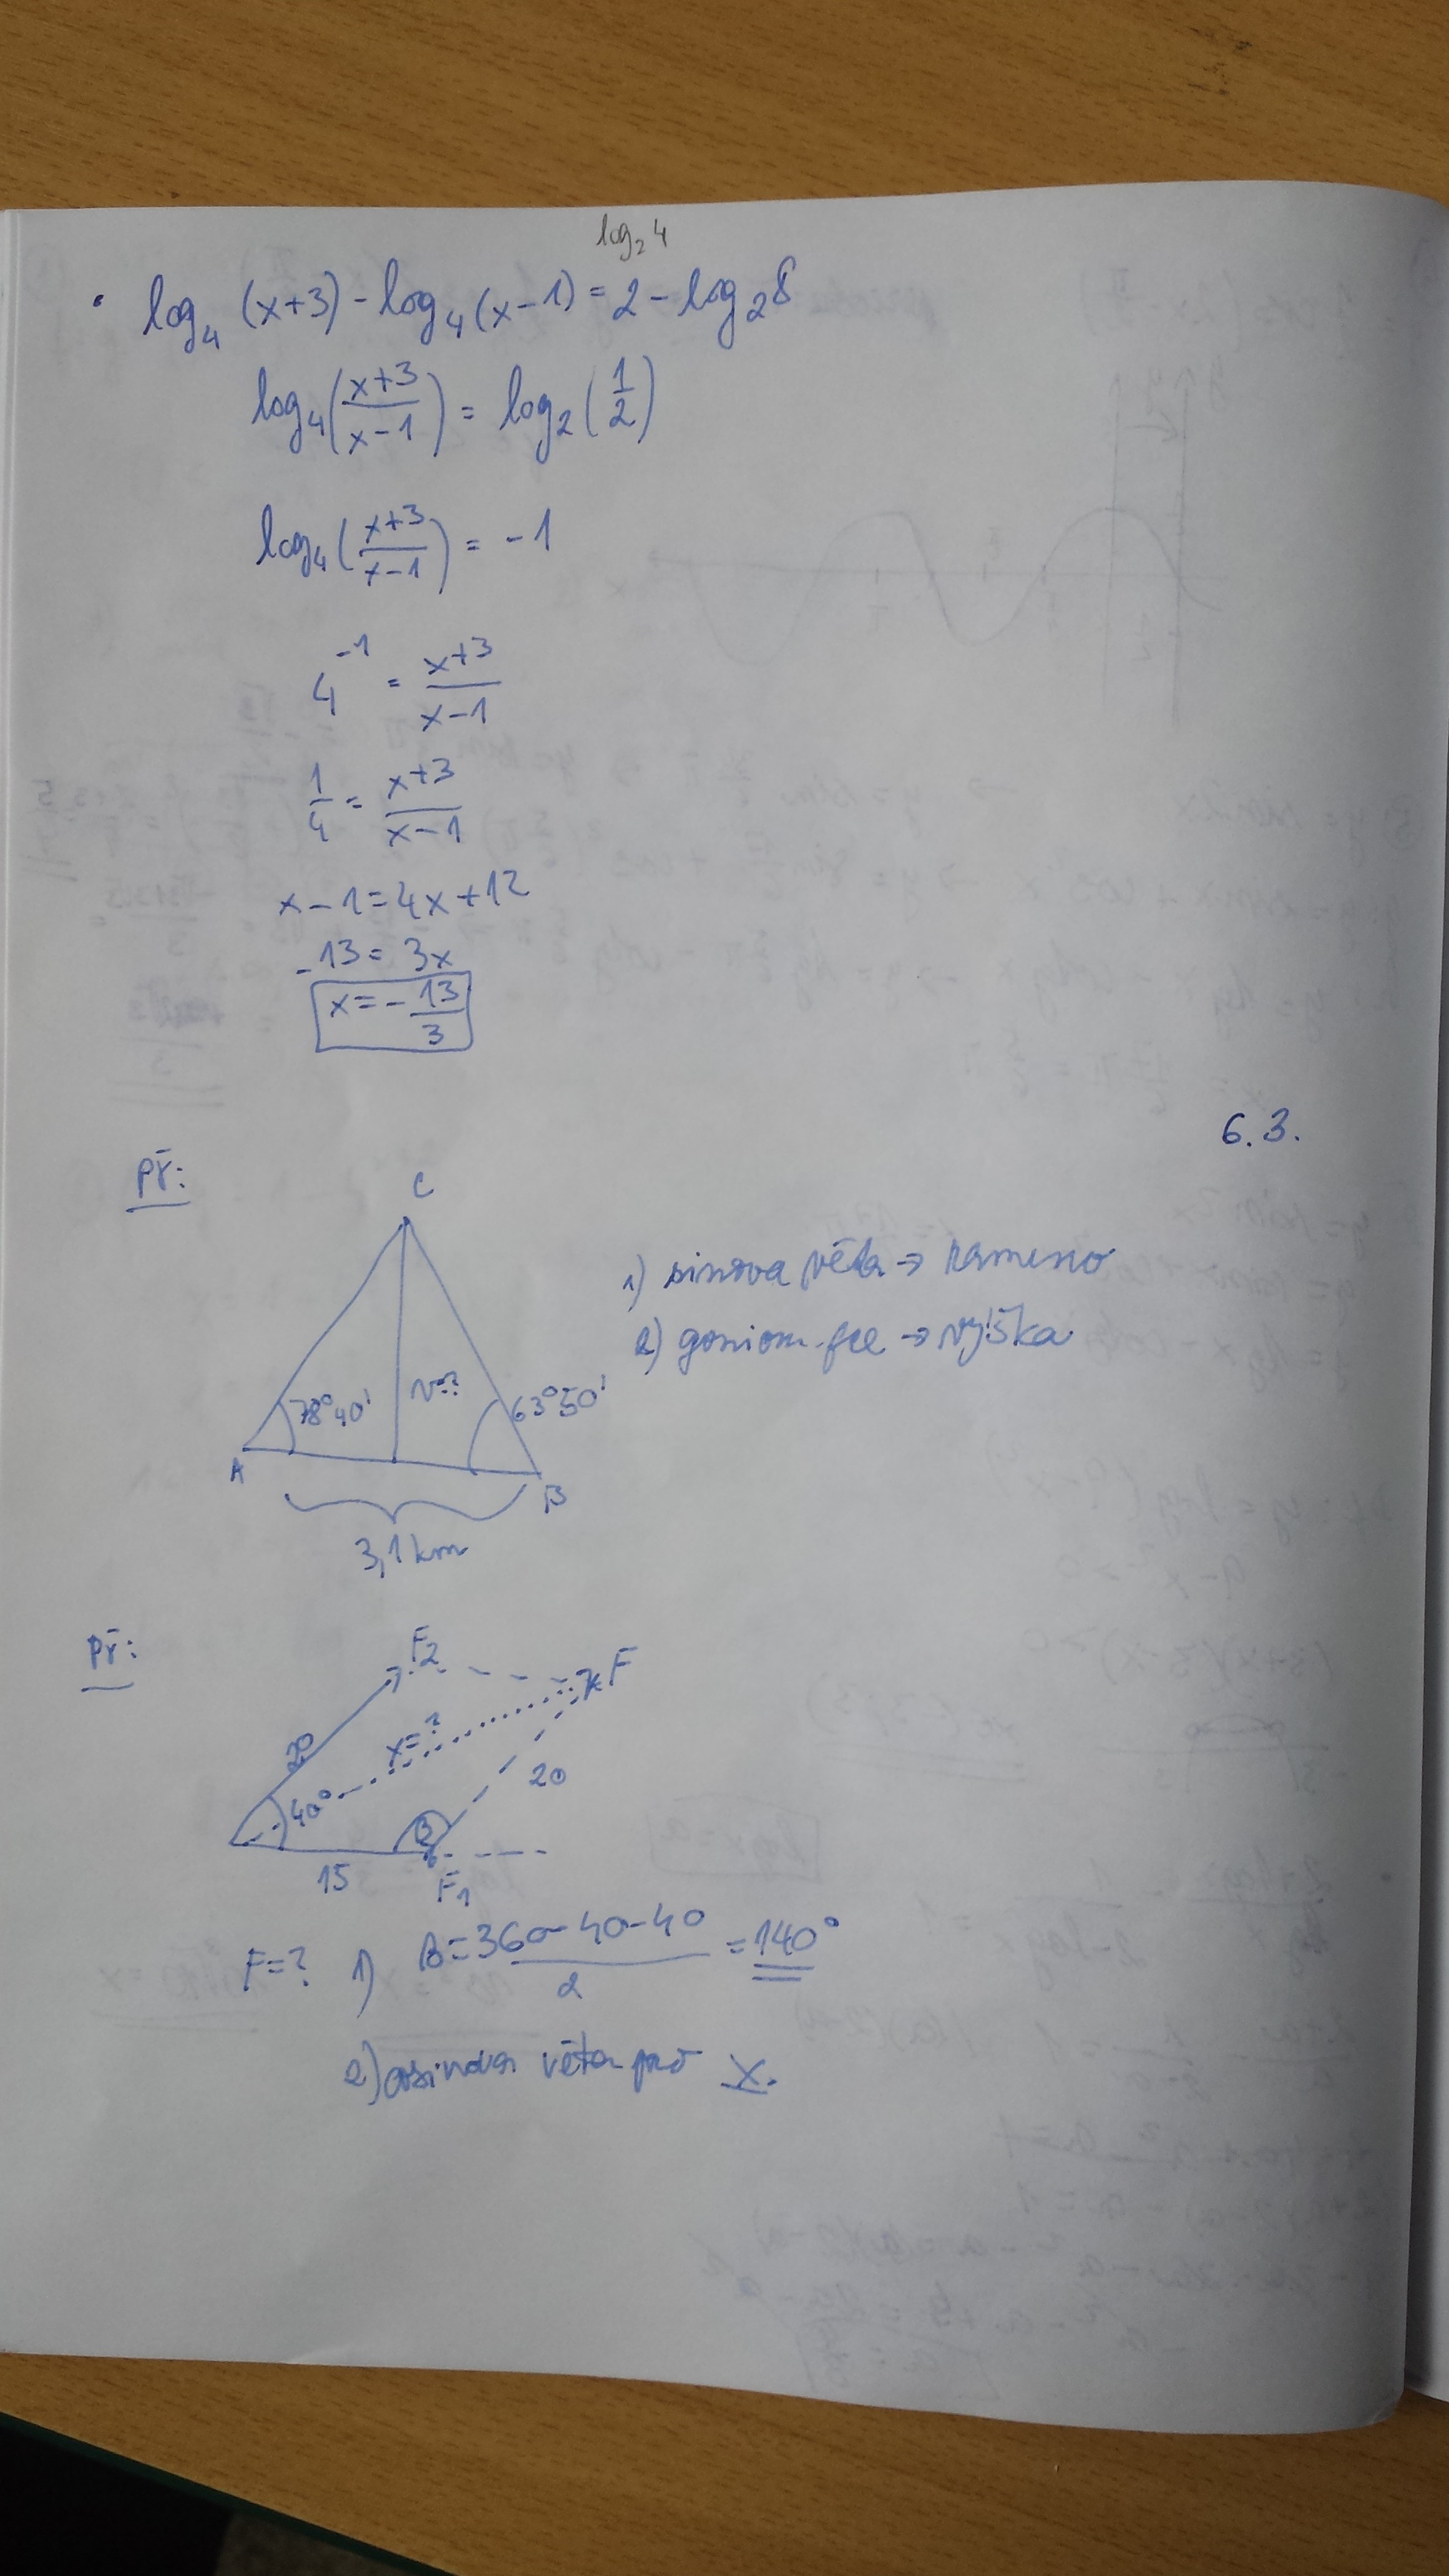 log₂4
• log₄(x+3) - log₄(x-1) = 2 - log₂8
log₄((x+3)/(x-1)) = log₂(1/2)
log₄((x+3)/(x-1)) = -1
4⁻¹ = (x+3)/(x-1)
1/4 = (x+3)/(x-1)
x-1=4x+12
-13=3x
x=-13/3
6.3.
Př:
C
1) sinova věta → rameno
2) goniom. fce → výška
78°40' v=? 63°50'
A B
3,1 km
Př:
F2 F
20 x=?
40° 20
β
15 F1
F=? 1) β=(360-40-40)/2 = 140°
2) cosinova věta pro x.